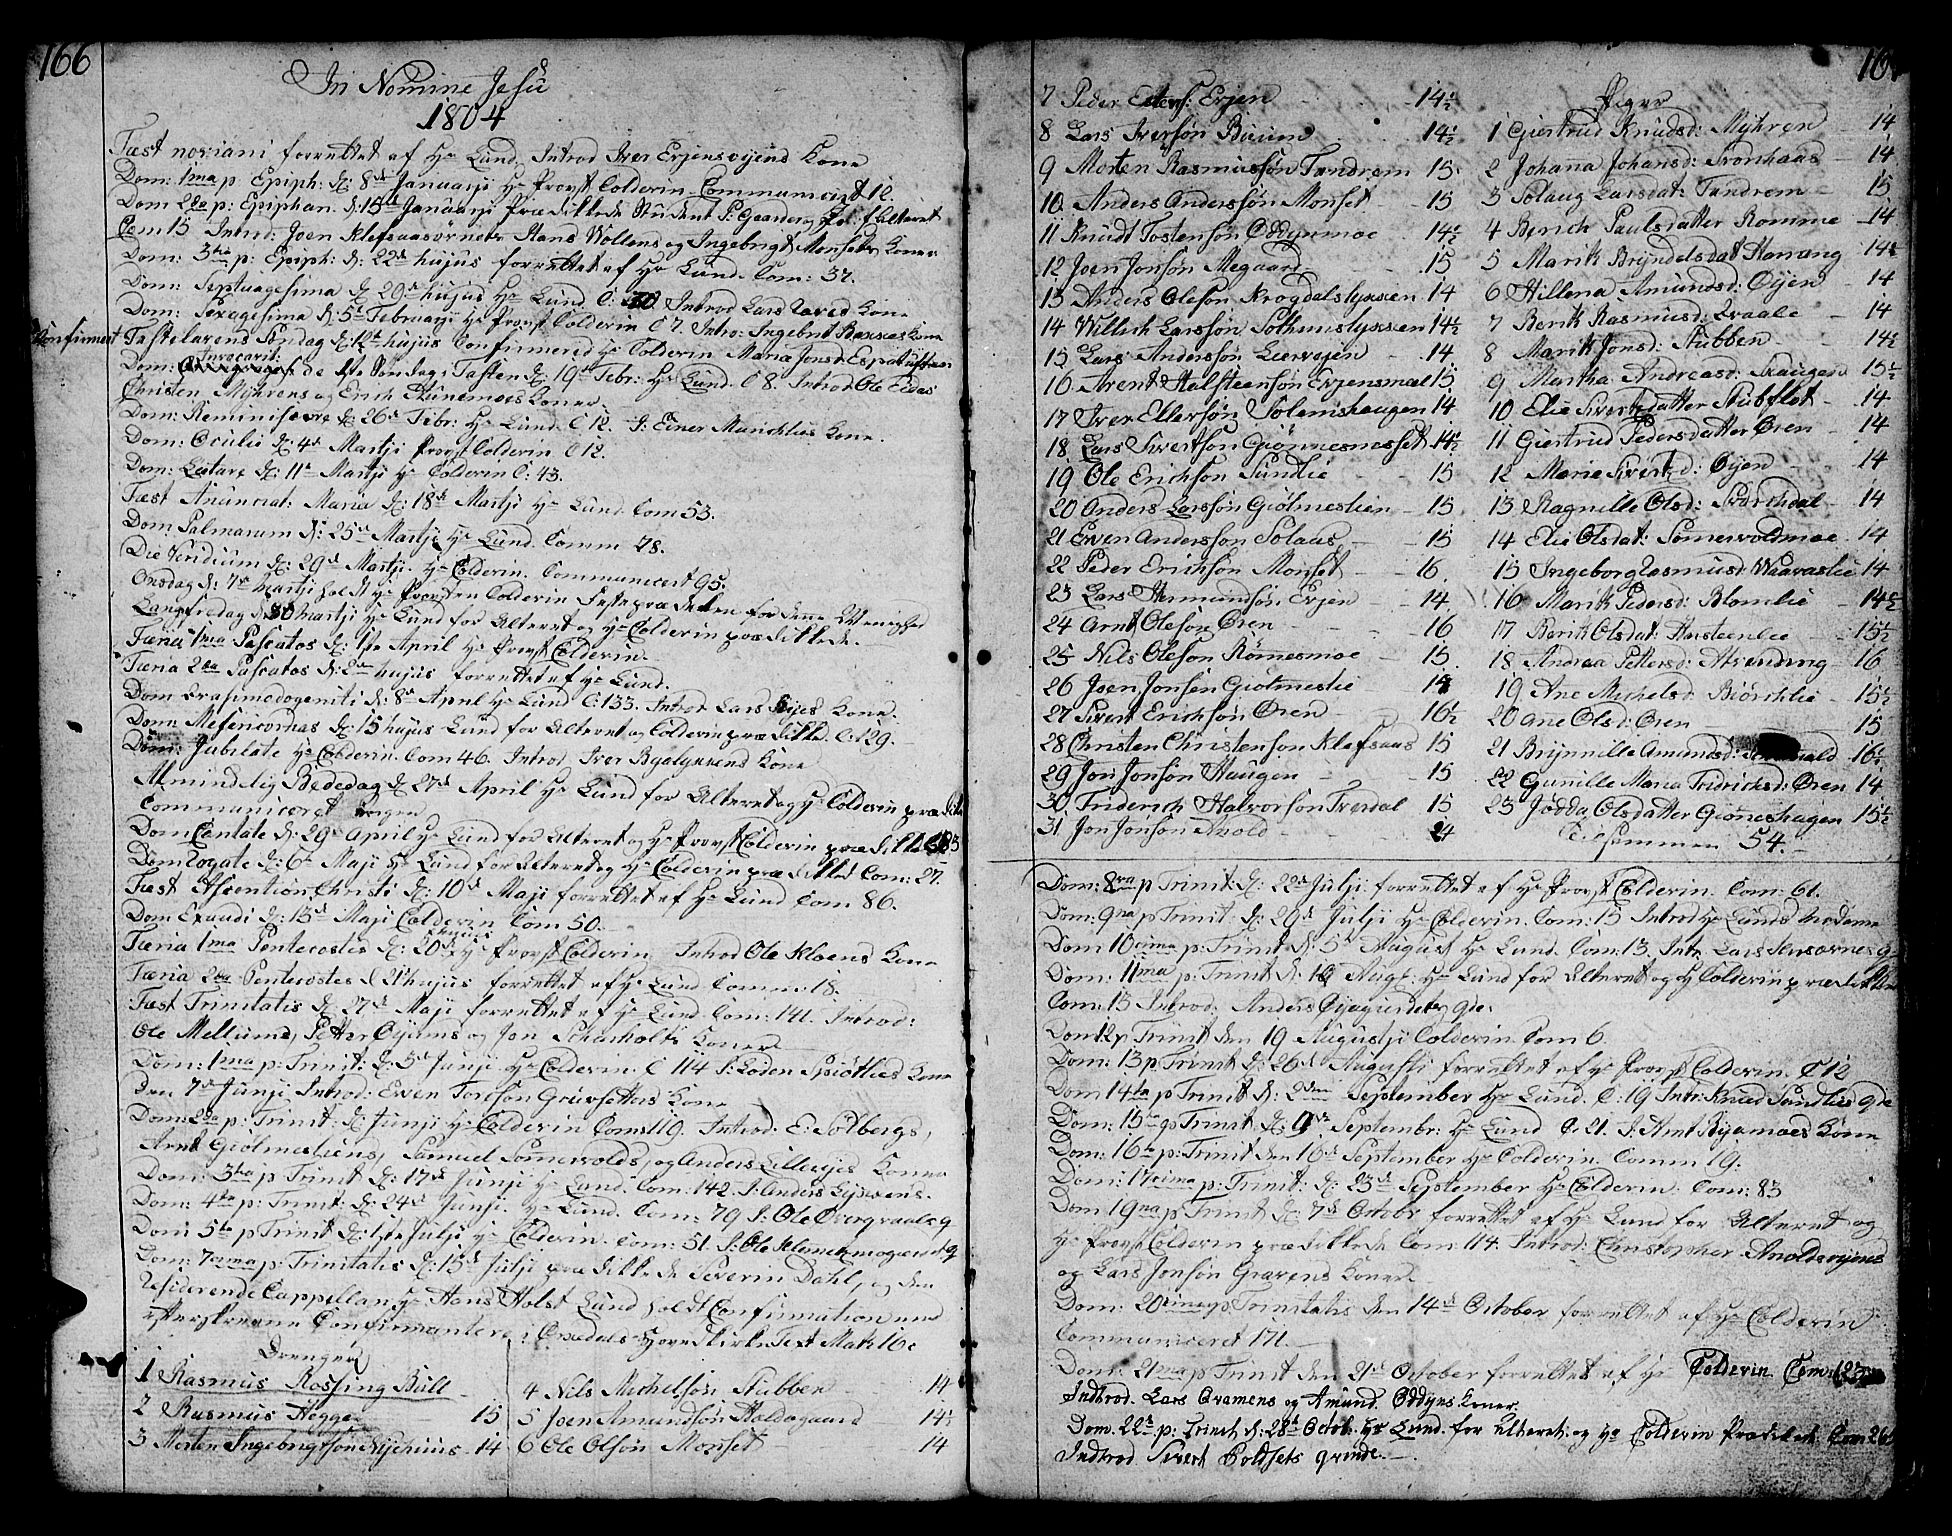 166
In Nomine Jesu
1804
Fæst noviani forrettet af Hr Lund, Introd Iver Erjensvejens Kone
Dom: 1ma p: Epiph: d: 8de Januarij Hr Provst Colderin Communicint 12.
Dom 2da p: Epiphan. d: 15de Januarij Prædikkede Student S: for Alteret
Com 15 Introd: Joen Klefsaasörnes Hans Wollens og Ingebrigt Monsets Koner
Dom: 3tia p: Epiph: d: 22de hujus forrettet af Hr Lund. Com: 37.
Dom: Septuagesima d: 29de hujus Hr Lund C: 30 Introd Lars Kone
Dom: Sexagesima d: 5te Februarij Hr Provst Colderin C 7. Intro: Ingebrit Kone
Confirmert Fastelavens Söndag d: 12te hujus Confirmered Hr Colderin Maria Jonsd:
Dom: Invocavit: de 1ste Söndag i Fasten d: 19de Febr: Hr Lund. C 8. Introd Ole Eidas
Christen Mÿhrens og Erich Koner
Dom: Reminiscere d: 26de Febr: Hr Lund. C 12. I: Einer Kone.
Dom: Oculie d: 4de Martji Provst Colderin C 12.
Dom: Letare d: 11te Martji Hr Colderin C: 43.
Fæst Anunciat: Maria d: 18de Martji Hr Lund. Com 53.
Dom: Palmarum d: 25de Martji Hr Lund. Comm 78.
Die Viridium d: 29de Martji. Hr Colderin. Communicert 95.
Onsdag d: 7de Martji holdt Hr Provsten Colderin Fasteprædiken for denne Menighed
Langfredag d 30 Martji Hr Lund for Alteret og Hr Colderin prædikkede.
Færia 1ma Pascatos d: 1ste April Hr Provst Colderin
Færia 2da Pascatos d: 2den hujus forrettet af Hr Lund.
Dom Qvasimodogeniti d: 8de April Hr Lund C: 133. Introd Lars Kone.
Dom: Mesericordias d: 15 hujus Lund for Alteret og Colderin prædikked. C: 129.
Dom: Jubilate Hr Colderin. Com 46. Introd Iver Kone
Almindelig Bededag d: 27de April Hr Lund for Alteret og Hr Colderin prædikked
Communiceret ingen
Dom Cantate d: 29de April Hr Lund for Alteret og Hr Provst Colderin prædikked
Dom Rogate d: 6te Maji Hr Lund for Alteret og Hr Colderin prædikked Com: 27.
Fæst Ascention Christi d: 10de Maji forrettet af Hr Lund Com 86.
Dom Exaudi d: 13de Maji Colderin Com 50.
Færia 1ma Pentecostes d: 20de hujus Hr Provst Colderin Introd Ole Kloens Kone
Færia 2da Pentecostes d 21 hujus forrettet af Hr Lund Comm: 18.
Fæst Trinitatis d: 27de Maji forrettet af Hr Lund. Com: 141. Introd:
Ole Mellums, Petter Öÿums og Jon Scharholts Koner
Dom: 1ma p: Trinit: d: 3de Junji Hr Colderin. C 114 I: Loden Spiötlies Kone
Den 7de Junji Introd: Even Toresön Gruvsettas Kone
Dom: 2da p: Trinit: d: Junji Hr Colderin Coms 119. Introd: E: Solbergs,
Arnt Giölmesliens, Samuel Sommervolds, og Anders Koner
Dom: 3tia p: Trinit d: 17de Junji Hr Lund. Com: 142. I: Anders
Dom: 4ta p: Trinit: d: 24de Junji. Hr Lund. Com: 79 I: Ole q
Dom 5ta p Trinit d: 1ste Julji Hr Colderin. Com: 51. I: Ole q
Dom: 7cima p: Trinitatis d: 15de Julji prædikkede Severin Dahl, og den
residerende Cappellan Hr Hans Holst Lund holdt Confirmation med
efterskrevne Confirmantere i Orcdals Hovedkirke Text Math 16c
Drenger
1 Rasmus Rossing Bull
2 Rasmus Hegge 15
3 Morten Ingebrigtsön Nÿehuus 14
4 Nils Michelsön Stubben 14
5 Joen Amundsön Holdogaard 14½
6 Ole Olsön Monset 14
7 Peder Estens: Erjen 14½
8 Lars Iversön Biium 14½
9 Morten Rasmussön Fandrem 15
10 Anders Anderssön Monset 15
11 Knudt Tostensön Oddÿnmoe 14½
12 Joen Jonsön Megaard 15
13 Anders Olesön Krogdalslÿkken 14
14 Willich Larssön Solhemslÿkken 14½
15 Lars Anderssön Leervojen 14
16 Arent Halsteensön Erjensmoe 15
17 Iver Ellersön Solemshaugen 14
18 Lars Sivertsön Giönnesmesset 14½
19 Ole Erichsön Sundlie 15
20 Anders Larssön Giölmeslien 15
21 Even Anderssön Solaas 15
22 Peder Erichsön Monset 16
23 Lars Aamundsön Erjen 14
24 Arnt Olesön Ören 16
25 Nils Olesön Römmesmoe 15
26 Joen Jonsön Giölmeslie 14
27 Sivert Erichsön Ören 16½
28 Christen Christensön Klefsaas 15
29 Jon Jonsön Haugen 15
30 Friderich Halvorsön Forrdal 15
31 Jon Jonsön Anold 24
Piger
1 Giertrud Knudsd: Mÿhren 14
2 Johana Johansd: Tronhaas 14
3 Solaug Larsdat: Fandrem 15
4 Berich Paulsdatter Romme 14
5 Marik Brÿndelsdat Hovrang 14½
6 Hillena Amundsd: Öÿen 14
7 Berik Rasmusd: Kraale 14
8 Marik Jonsd: Stubben 14½
9 Martha Andreasd: Haugen 15½
10 Elie Sivertsdatter Stubflot 14
11 Giertrud Pedersdatter Ören 14
12 Marie Sivertsd: Öÿen 14
13 Ragnille Olsd: Svorchdal 14
14 Elie Olsdat: Somervoldmoe 14
15 Ingeborg Rasmusd: Waaraslie 14
16 Marik Pedersd: Blomlie 14½
17 Berik Olsdat: Hasteenlie 15½
18 Andrea Pettersd: Atrendving 16
19 Ane Michelsd Biörchlie 15½
20 Ane Olsd: Ören 15
21 Brÿnnille Amundsd: 16½
22 Gunille Maria Fridrichsd: Ören 14
23 Jodda Olsdatter Giönneshagen 15½
tilsammen 54.
Dom: 8va p Trinit: d: 22de Julji forrettet af Hr Provst Colderin. Com: 61.
Dom: 9na p Trinit d: 29de Julji Hr Colderin. Com: 15 Introd Hr Lunds Madame
Dom 10cima p: Trinit d: 5te August Hr Lund. Com: 13. Intr: Lars
Dom: 11ma p: Trinit d: 12 Aug: Hr Lund for Alteret og H Colderin prædikked
Com: 13 Introd: Anders qde:
Dom 12 p Trinit den 19 Augustji Colderin. Com 6.
Dom: 13 p Trinit d: 26de Augusti forrettet af Hr Provst Colderin. C 12
Dom 14ta p Trinit d: 2den September Hr Lund. C: 19 Intr: Knud Sundlies qde
Dom: 15ta p Trinit d: 9de Septembr: Hr Lund C: 21. I: Arnt Bÿamoes Kone
Dom: 16ta p: Trinit den 16de September Hr Colderin. Comm 19.
Dom: 17cima p: Trinit: d: 23de September Hr Colderin: Com: 83
Dom 19na p Trinit d: 7de Octobr forrettet af Hr Lund for Alteret og
Hr Provst Colderin prædikkede Com: 114. Introd: Christopher Anoldsvojens
og Lars Jonsön Gravens Koner
Dom: 20cima p: Trinitatis den 14de October forrettet af Hr Colderin
Communiceret 171.
Dom: 21ma p Trinit den 21de October forrettet af Hr Colderin Com:
Indtrod. Lars Qvamens og Amund Oddÿns Koner.
Dom. 22de p: Trinit d: 28de Octob. Hr Lund for Alteret og Hr Colderin Prædiket Com 26
Indtrod Sivert Boldsets qvinde.